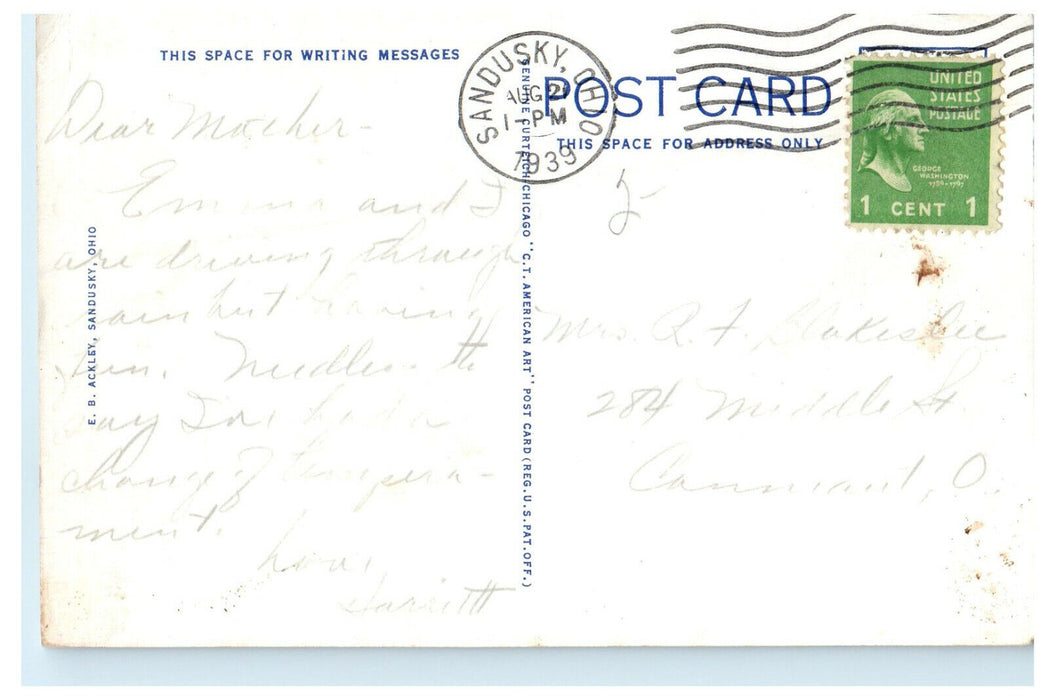 THIS SPACE FOR WRITING MESSAGES
SANDUSKY, OHIO
AUG 21
1-PM
1939
POST CARD
THIS SPACE FOR ADDRESS ONLY
UNITED
STATES
POSTAGE
GEORGE
WASHINGTON
1789-1797
1 CENT 1
E. B. ACKLEY, SANDUSKY, OHIO
GENUINE CURTEICH-CHICAGO "C.T. AMERICAN ART" POST CARD (REG. U.S. PAT. OFF.)
Dear Mother-
Emma and I
are driving through
rain but having
fun. Needless to
say I've had a
change of tempera-
ment.
Love,
Mrs. R. F. Blakeslee
284 Middle St
Conneaut, O.